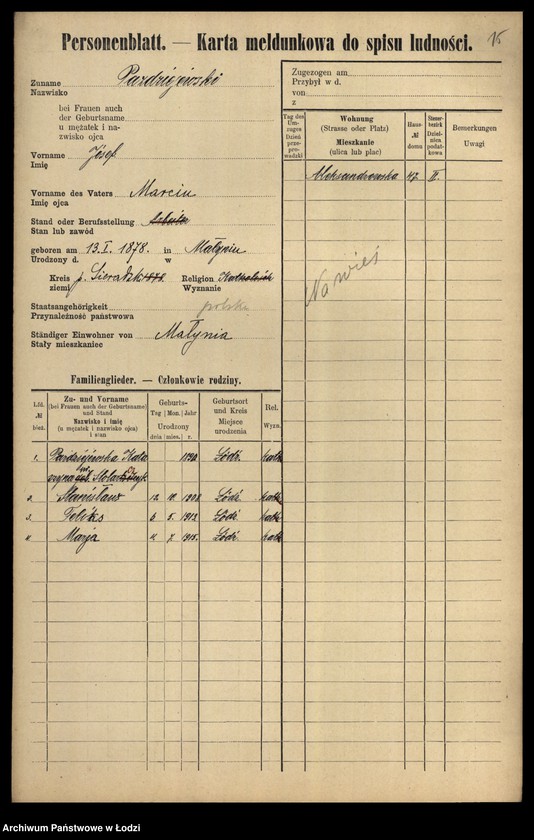 Personenblatt. — Karta meldunkowa do spisu ludności.
15
Zuname
Nazwisko
Pardziejewski
bei Frauen auch
der Geburtsname
u mężatek i na-
zwisko ojca
Vorname
Imię
Józef
Vorname des Vaters
Imię ojca
Marcin
Stand oder Berufsstellung
Stan lub zawód
geboren am 13. I. 1878. in Małyniu
Urodzony d. w
Kreis p. Sieradzki Religion Katholisch
ziemi Wyznanie
Staatsangehörigkeit polska
Przynależność państwowa
Ständiger Einwohner von Małynia
Stały mieszkaniec
Familienglieder. — Członkowie rodziny.
Lfd. № bież.
Zu- und Vorname
(bei Frauen auch der Geburtsname)
und Stand
Nazwisko i imię
(u mężatek i nazwisko ojca)
i stan
Geburts-
Tag Mon. Jahr
Urodzony
dnia mies. r.
Geburtsort
und Kreis
Miejsce
urodzenia
Rel.
Wyzn.
1. Pardziejewska Kata 1890 Łódź. kath
rzyna
2. Stanisław 12. 10. 1908 Łódź. kath
3. Feliks 6. 5. 1912 Łódź. kath
4. Marja 4. 7. 1915. Łódź. kath
Zugezogen am
Przybył w d.
von
z
Tag des
Um-
zuges
Dzień
prze-
prowadzki
Wohnung
(Strasse oder Platz)
Mieszkanie
(ulica lub plac)
Haus-
№
domu
Steuer-
bezirk
Dziel-
nica
podat-
kowa
Bemerkungen
Uwagi
Aleksandrowska 47. II.
Na wieś
Archiwum Państwowe w Łodzi